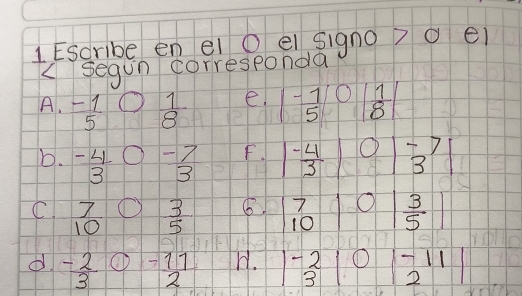 1 Escribe en el O el signo > o el
< segun corresponda
A. -1/5 O 1/8 e. |-1/5| O |1/8|
b. -4/3 O -7/3 F. |-4/3| O |-7/3|
C. 7/10 O 3/5 G. |7/10| O |3/5|
d. -2/3 O -11/2 h. |-2/3| O |-11/2|